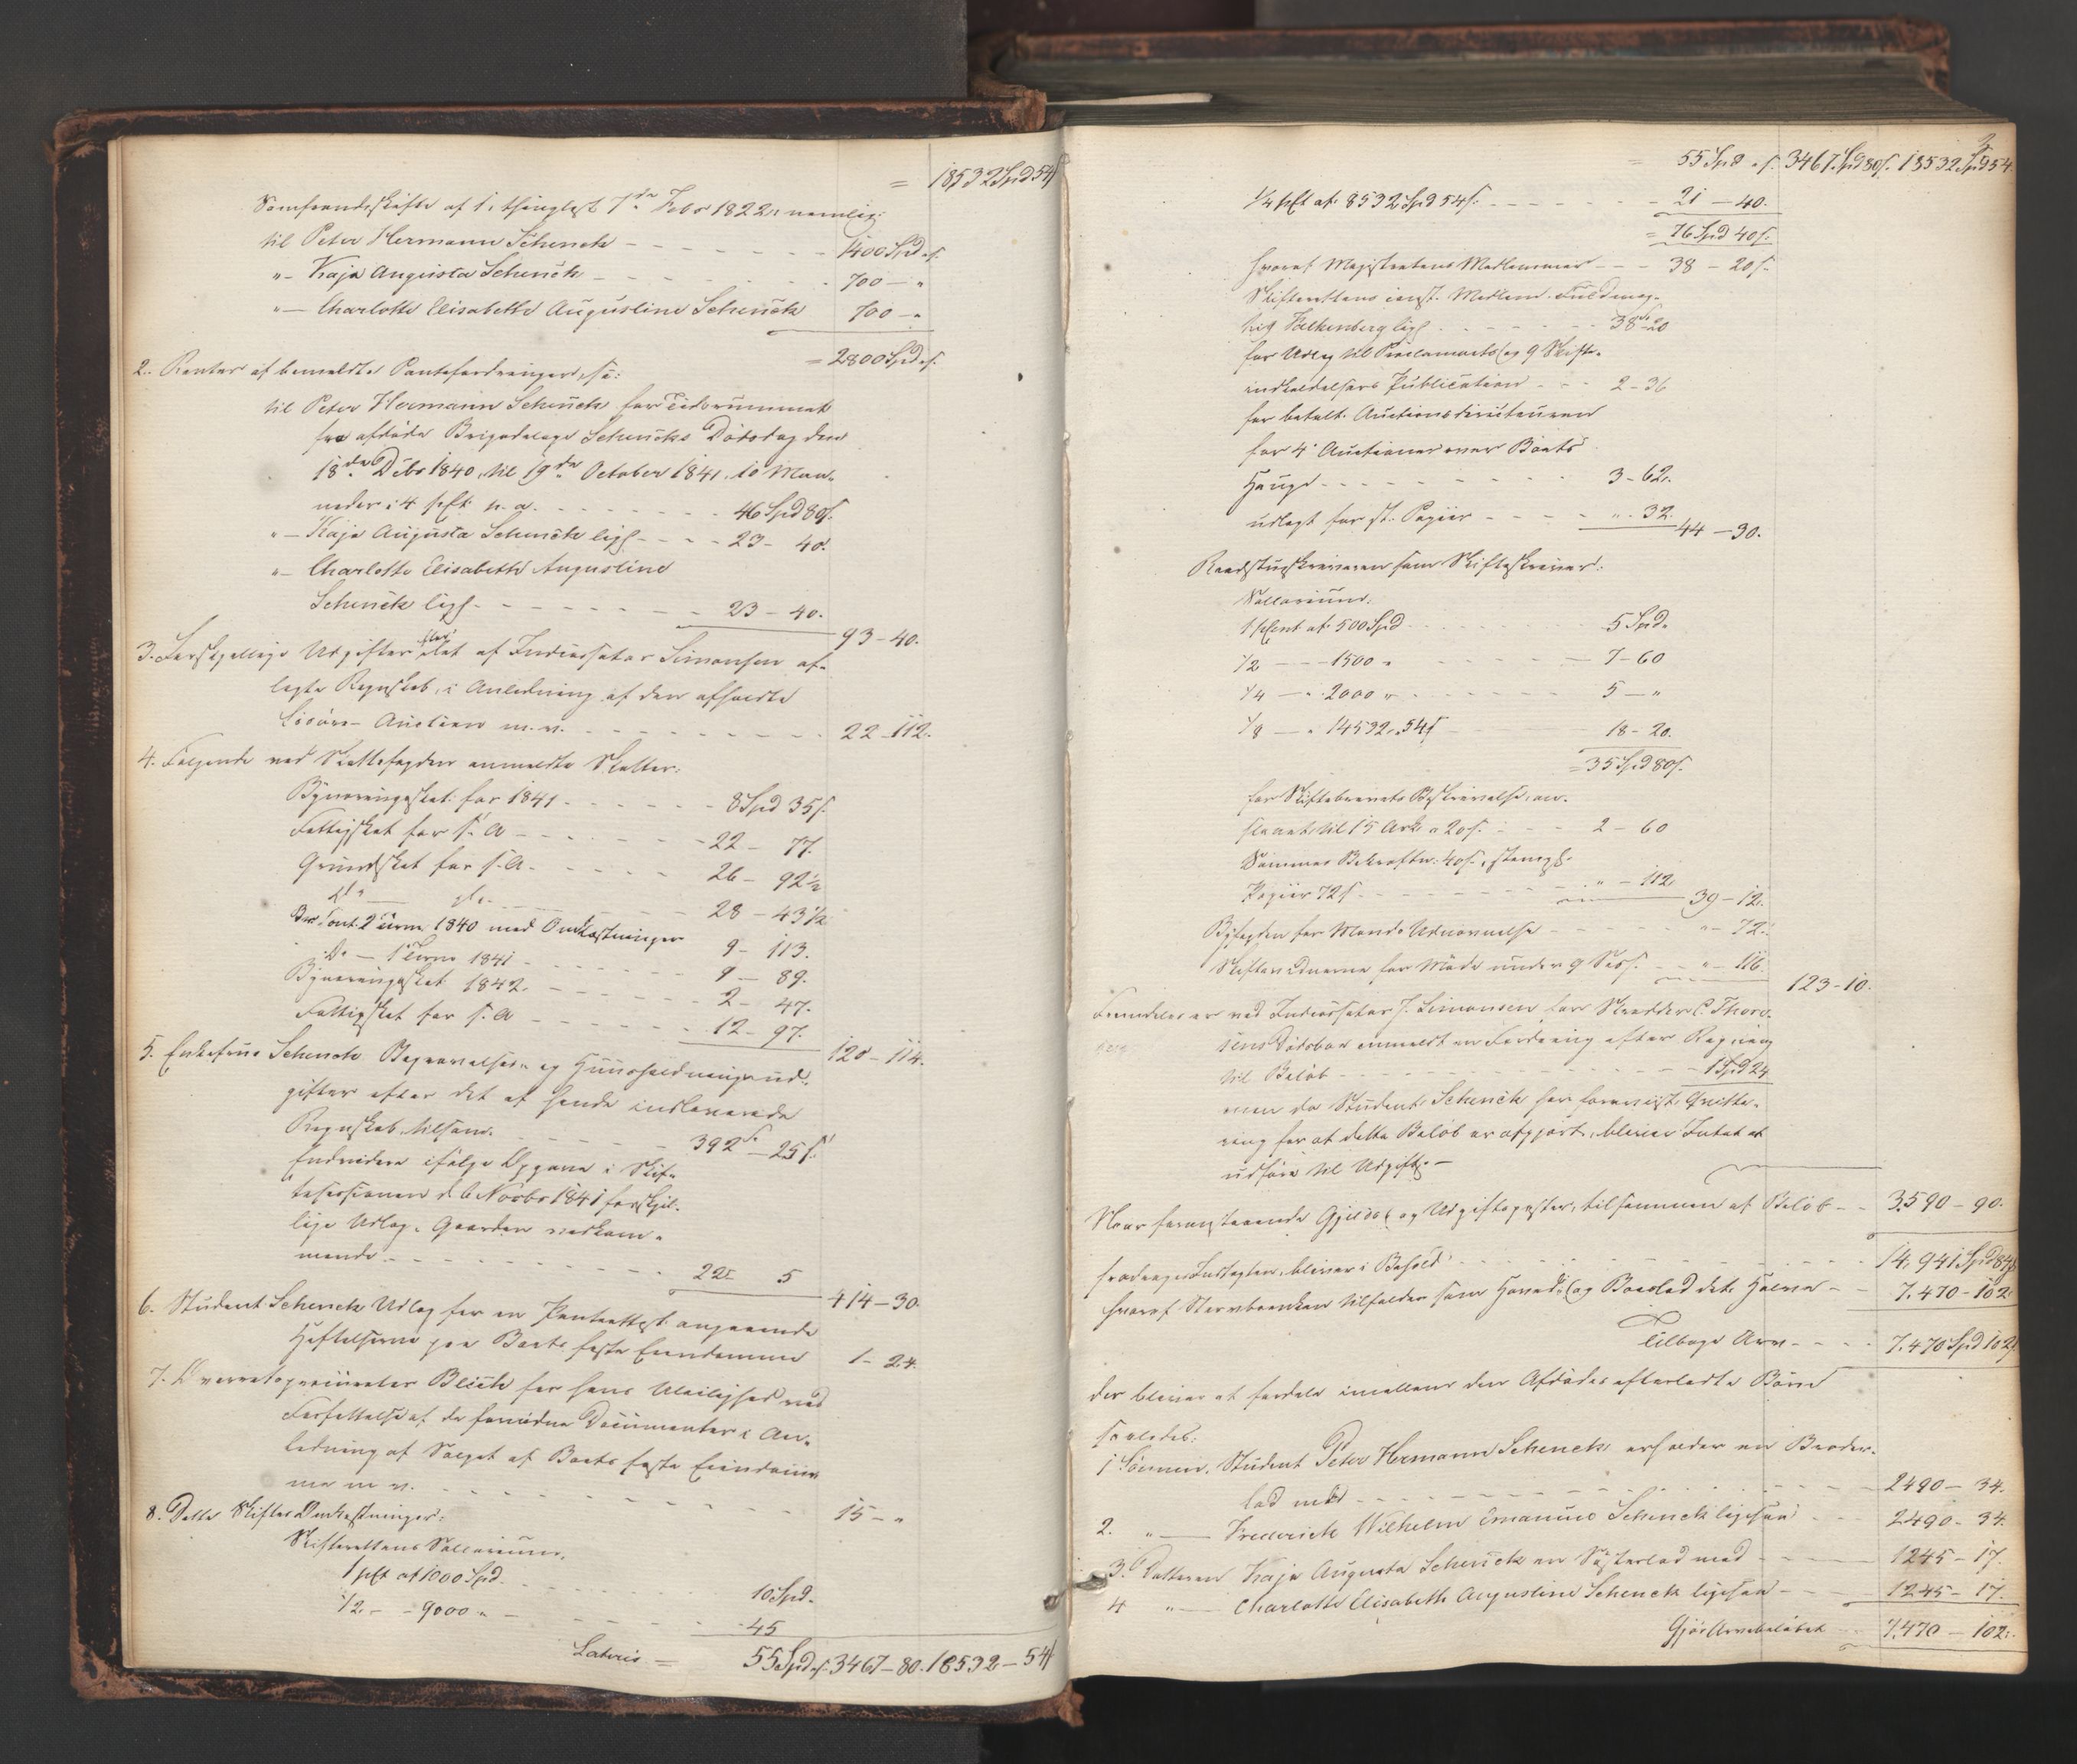 = 18532 Spd 54 s
Samfrændeskifte af 1, thinglyst 7de Febr 1822, nemlig:
til Peter Hermann Schenck - - - 1400 Spd „ s.
„ - Kaja Augusta Schenck - - - 700 - „
„ - Charlotte Elisabethe Augustine Schenck 700 - „
= 2800 Spd „ s.
2. Renter af bemeldte Pantefordringer, sc:
til Peter Hermann Schenck for Tidsrummet
fra afdøde Brigadelæge Schencks Dødsdag den
18de Decbr 1840, til 19de October 1841, 10 Maa-
neder i 4 pCt. p. a. - - - 46 Spd 80 s.
„ - Kaja Augusta Schenck lige - - - 23 - 40.
„ - Charlotte Elisabethe Augustine
Schenck lige - - - 23 - 40.
93 - 40.
3. Forskjellige Udgifter efter det af Incassator Simonsen af-
lagte Regnskab, i Anledning af den afholdte
Løsøre-Auction m. v. - - - 22 - 112.
4. Følgende ved Skattefogden anmeldte Skatter:
Bynæringsskat for 1841 - - - 8 Spd 35 s.
Fattigskat for s. A - - - 22 - 77.
Grundskat for s. A. - - - 26 - 92½
do - do - - - 28 - 43½
2 Term. 1840 med Omkostninger 9 - 113.
Do - 1 Term 1841 - - - 9 - 89.
Bynæringsskat 1842. - - - 2 - 47.
Fattigskat for s. A - - - 12 - 97.
120 - 114.
5. Enkefrue Schenck Begravelses- og Huusholdningsud-
gifter efter det af hende indleverede
Regnskab, tilsam. - - - 392 - 25 s.
Endvidere ifølge Opgave i Skif-
tesessionen d. 6 Novbr 1841 forskjel-
lige Udlæg, Gaarden vedkom-
mende - - - 22 5
414 - 30.
6. Student Schenck Udlæg for en Panteattest angaaende
Heftelserne paa Boets faste Eiendomme 1 - 24.
7. Overretsprocurator Blich for hans Uleilighed ved
Forfattelse af de fornødne Documenter i An-
ledning af Salget af Boets faste Eiendom-
me m. v. - - - 15 - „
8. Dette Skiftes Omkostninger:
Skifterettens Sallarium,
1 pCt af 1000 Spd. - - - 10 Spd.
1/2 - - 9000 „ - - - 45
Lateris = 55 Spd „ s. 3467 - 80. 18532 - 54 s
3
= 55 Spd „ s. 3467 Spd 80 s. 18532 Spd 54
1/4 pCt af 8532 Spd 54 s. - - - 21 - 40.
= 76 Spd 40 s.
hvoraf Magistratens Medlemmer - - - 38 - 20 s.
Skifterettens const. Medlem Fuldmæg-
tig Falkenberg lige - - - 38 - 20
for Udlæg til Proclamaets og 9 Skifte-
indkaldelsers Publication - - - 2 - 36
for betalt Auctionsdirecteuren
for 4 Auctioner over Boets
Hauge - - - 3 - 62.
udlagt for st. Papiir - - - „ - 32.
44 - 30.
Raadstueskriveren som Skifteskriver:
Sallarium,
1 pCent af 500 Spd - - - 5 Spd.
1/2 - - 1500 „ - - - 7 - 60
1/4 - „ 2000 „ - - - 5 - „
1/8 - „ 14532 „ 54 s - - - 18 - 20.
= 35 Spd 80 s.
for Skiftebrevets Beskrivelse, an-
slaaet til 15 Ark a 20 s. - - - 2 - 60
Sammes Bekræftn. 40 s., stemplt.
Papiir 72 s - - - „ - 112
39 - 12.
Byfogden for Mænds Udnævnelse - - - „ - 72.
Skiftevidnerne for Møde under 9 Sess. - - „ - 116.
123 - 10.
Fremdeles er ved Incassator J. Simonsen for Skrædder C. Thore-
sens Dødsboe anmeldt en Fordring efter Regning
til Beløb - - - 1 Spd 24
men da Student Schenck har foreviist Qvitte-
ring for at dette Beløb er afgjort, bliver Intet at
udføre til Udgift. -
Naar foranstaaende Gjelds- og Udgiftsposter, tilsammen af Beløb - - 3590 - 90.
fradrages Indtægten, bliver i Behold - - - 14,941 Spd 84 s
hvoraf Stervboenken tilfalder som Hoved- og Boeslod det Halve - - 7.470 - 102
Tilbage Arv - - - 7.470 Spd 102 s
der bliver at fordele imellem den Afdødes efterladte Børn
saaledes:
1 Sønnen, Student Peter Hermann Schenck erholder en Broder-
lod med - - - 2490 - 34.
2. „ - Frederich Wilhelm Emanuel Schenck ligesaa - - - 2490 - 34.
3. Datteren Kaja Augusta Schenck en Søsterlod med - - - 1245 - 17.
4 „ - Charlotte Elisabeth Augustine Schenck ligesaa - - - 1245 - 17.
Gjør Arvebeløbet - - 7,470 - 102.